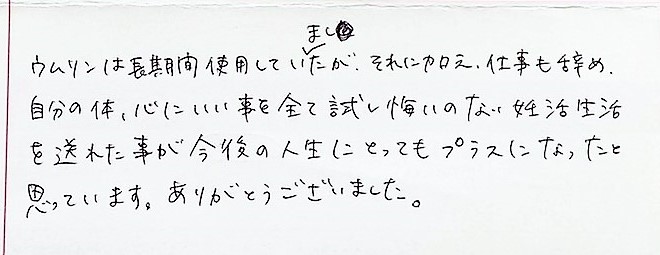 ウムリンは長期間使用していましたが、それに加え、仕事も辞め、
自分の体、心にいい事を全て試し悔いのない妊活生活
を送れた事が今後の人生にとってもプラスになったと
思っています。ありがとうございました。